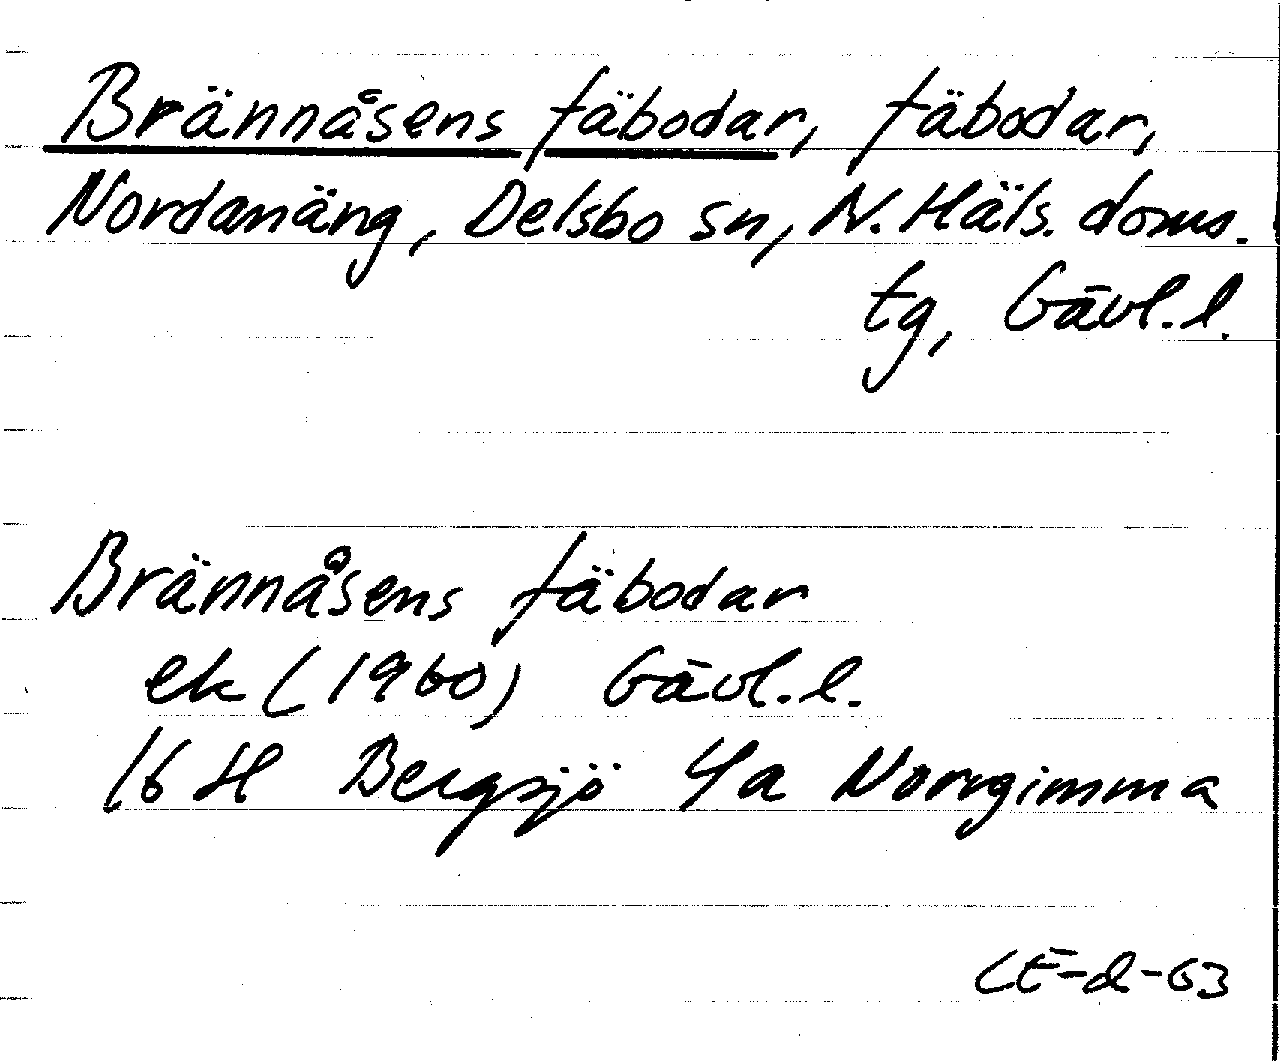 Brännåsens fäbodar, fäbodar,
Nordanäng, Delsbo sn, N. Häls. doms.
tg, Gävl.l.
Brännåsens fäbodar
ek (1960) Gävl.l.
16 H Bergsjö 4a Norrgimma
CE-d-63